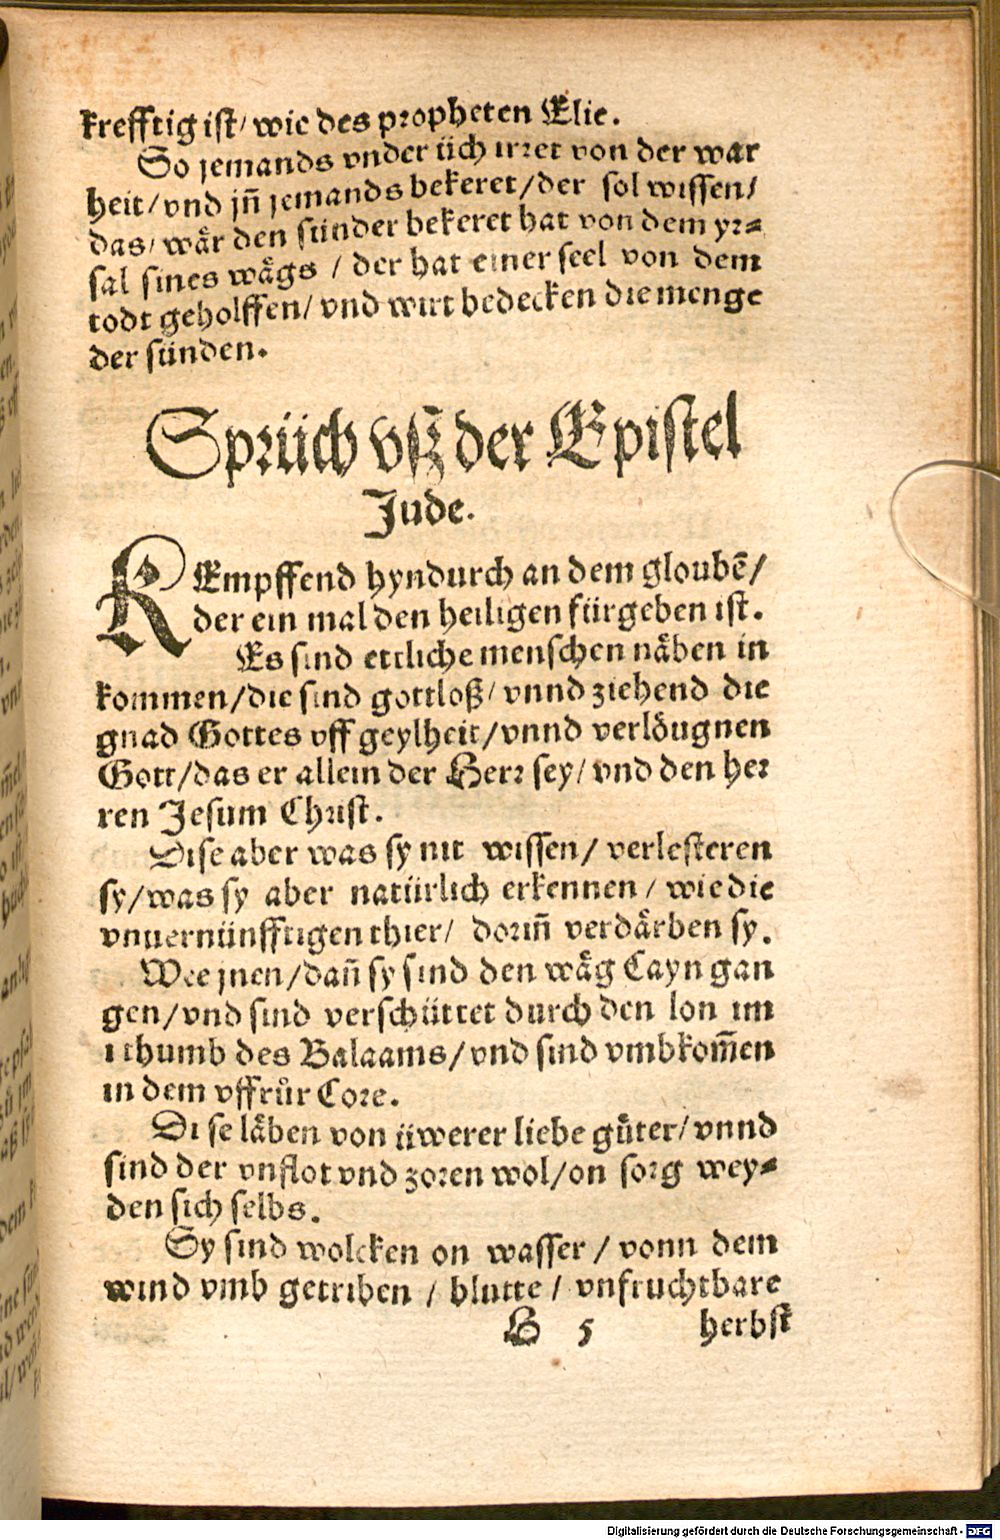 krefftig ist/ wie des propheten Elie.
So jemands vnder üch irret von der war
heit/ vnd jn̄ jemands bekeret/ der sol wissen/
das/ wår den sünder bekeret hat von dem yr⸗
sal sines wågs / der hat einer seel von dem
todt geholffen/ vnd wirt bedecken die menge
der sünden.
Sprüch vß der Epistel
Jude.
KEmpffend hyndurch an dem gloubē/
der ein mal den heiligen fürgeben ist.
Es sind ettliche menschen nåben in
kommen/ die sind gottloß/ vnnd ziehend die
gnad Gottes vff geylheit/ vnnd verlöugnen
Gott/ das er allein der Herr sey/ vnd den her
ren Jesum Christ.
Dise aber was sy nit wissen/ verlesteren
sy/ was sy aber natürlich erkennen / wie die
vnuernünfftigen thier/ dorin̄ verdårben sy.
Wee jnen/ dan̄ sy sind den wåg Cayn gan
gen/ vnd sind verschüttet durch den lon im
irthumb des Balaams/ vnd sind vmbkom̄en
in dem vffrůr Core.
Dise låben von üwerer liebe gůter/ vnnd
sind der vnflot vnd zoren wol/ on sorg wey⸗
den sich selbs.
Sy sind wolcken on wasser / vonn dem
wind vmb getriben / blutte / vnfruchtbare
H 5 herbst
Digitalisierung gefördert durch die Deutsche Forschungsgemeinschaft - DFG